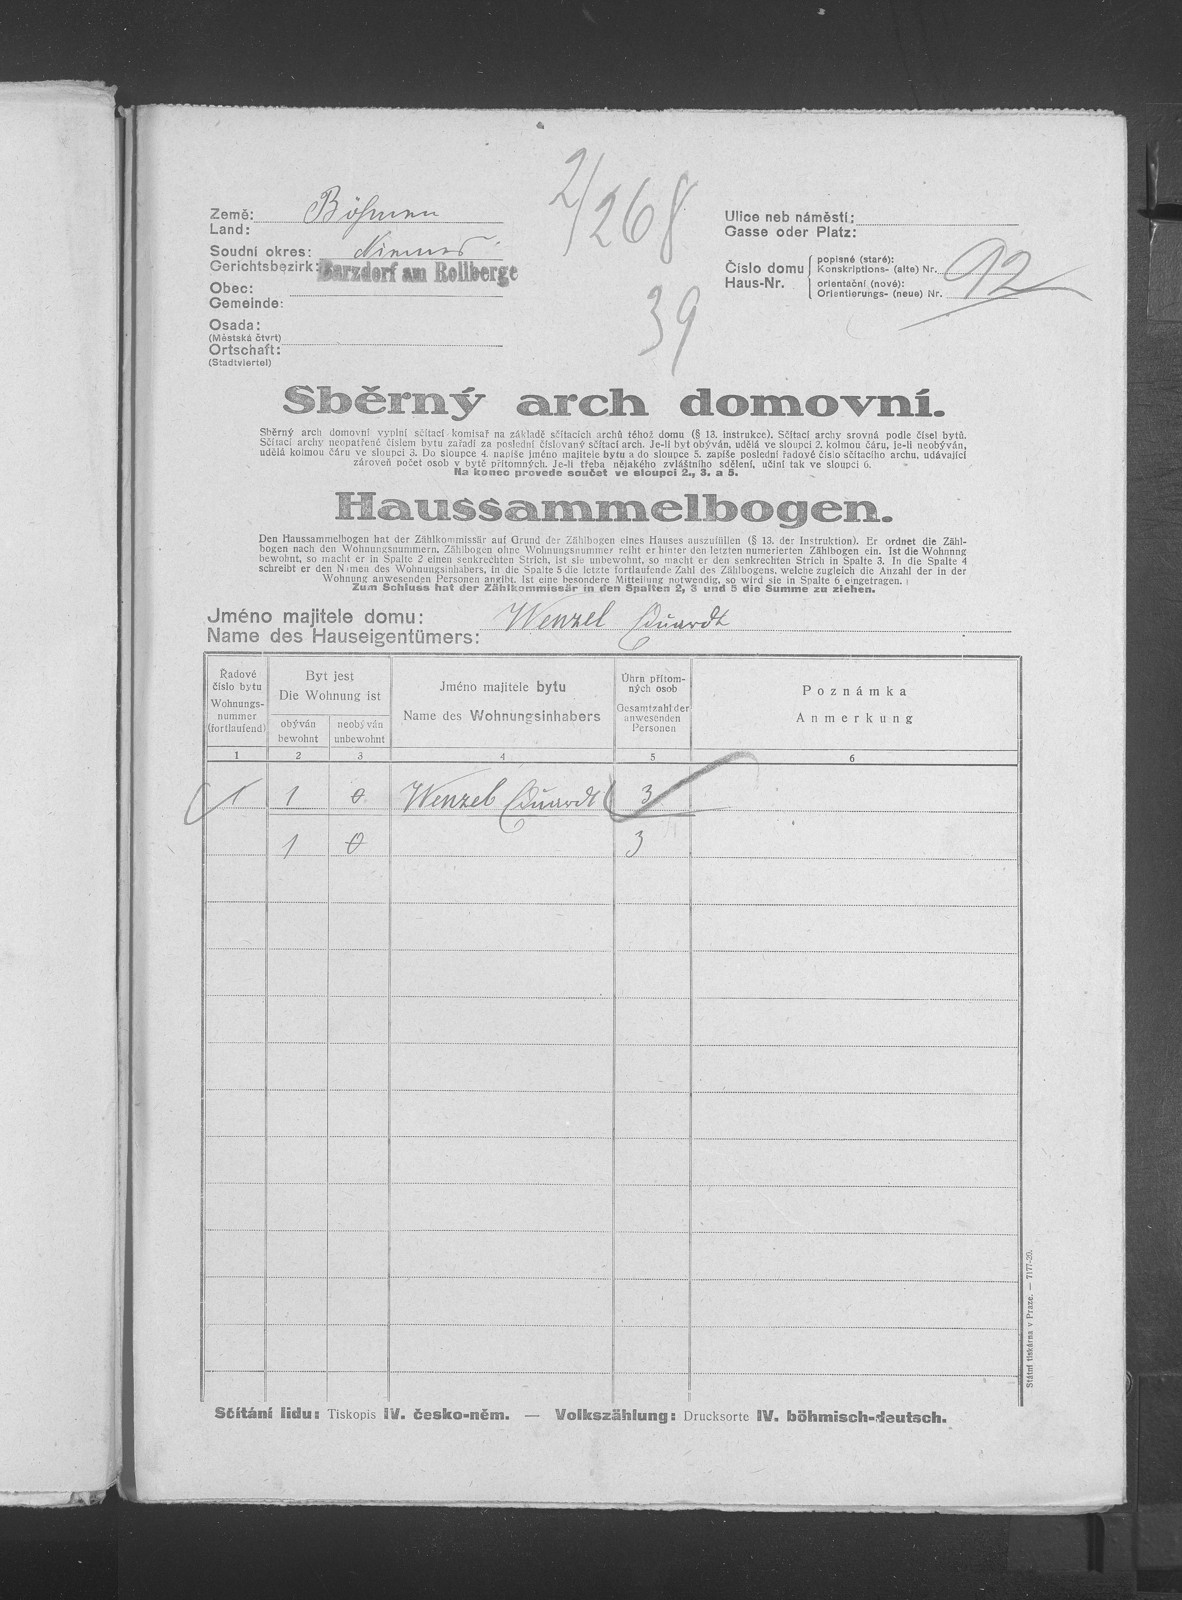 2/268
39
Země: Böhmen
Land:
Soudní okres: Niemes
Gerichtsbezirk:
Barzdorf am Rollberge
Obec:
Gemeinde:
Osada:
(Městská čtvrt)
Ortschaft:
(Stadtviertel)
Ulice neb náměstí:
Gasse oder Platz:
Číslo domu
Haus-Nr.
popisné (staré):
Konskriptions- (alte) Nr. 92
orientační (nové):
Orientierungs- (neue) Nr.
Sběrný arch domovní.
Sběrný arch domovní vyplní sčítací komisař na základě sčítacích archů téhož domu (§ 13. instrukce). Sčítací archy srovná podle čísel bytů.
Sčítací archy neopatřené číslem bytu zařadí za poslední číslovaný sčítací arch. Je-li byt obýván, udělá ve sloupci 2. kolmou čáru, je-li neobýván,
udělá kolmou čáru ve sloupci 3. Do sloupce 4. napíše jméno majitele bytu a do sloupce 5. zapíše poslední řadové číslo sčítacího archu, udávající
zároveň počet osob v bytě přítomných. Je-li třeba nějakého zvláštního sdělení, učiní tak ve sloupci 6.
Na konec provede součet ve sloupci 2., 3. a 5.
Haussammelbogen.
Den Haussammelbogen hat der Zählkommissär auf Grund der Zählbogen eines Hauses auszufüllen (§ 13. der Instruktion). Er ordnet die Zähl-
bogen nach den Wohnungsnummern. Zählbogen ohne Wohnungsnummer reiht er hinter den letzten numerierten Zählbogen ein. Ist die Wohnung
bewohnt, so macht er in Spalte 2 einen senkrechten Strich, ist sie unbewohnt, so macht er den senkrechten Strich in Spalte 3. In die Spalte 4
schreibt er den Namen des Wohnungsinhabers, in die Spalte 5 die letzte fortlaufende Zahl des Zählbogens, welche zugleich die Anzahl der in der
Wohnung anwesenden Personen angibt. Ist eine besondere Mitteilung notwendig, so wird sie in Spalte 6 eingetragen.
Zum Schluss hat der Zählkommissär in den Spalten 2, 3 und 5 die Summe zu ziehen.
Jméno majitele domu: Wenzel Eduardt
Name des Hauseigentümers:
Řadové
číslo bytu
Wohnungs-
nummer
(fortlaufend)
Byt jest
Die Wohnung ist
obýván
bewohnt
neobýván
unbewohnt
Jméno majitele bytu
Name des Wohnungsinhabers
Úhrn přítom-
ných osob
Gesamtzahl der
anwesenden
Personen
Poznámka
Anmerkung
1 2 3 4 5 6
1 1 0 Wenzel Eduardt 3
1 0 3
Státní tiskárna v Praze. — 7177-20.
Sčítání lidu: Tiskopis IV. česko-něm. — Volkszählung: Drucksorte IV. böhmisch-deutsch.